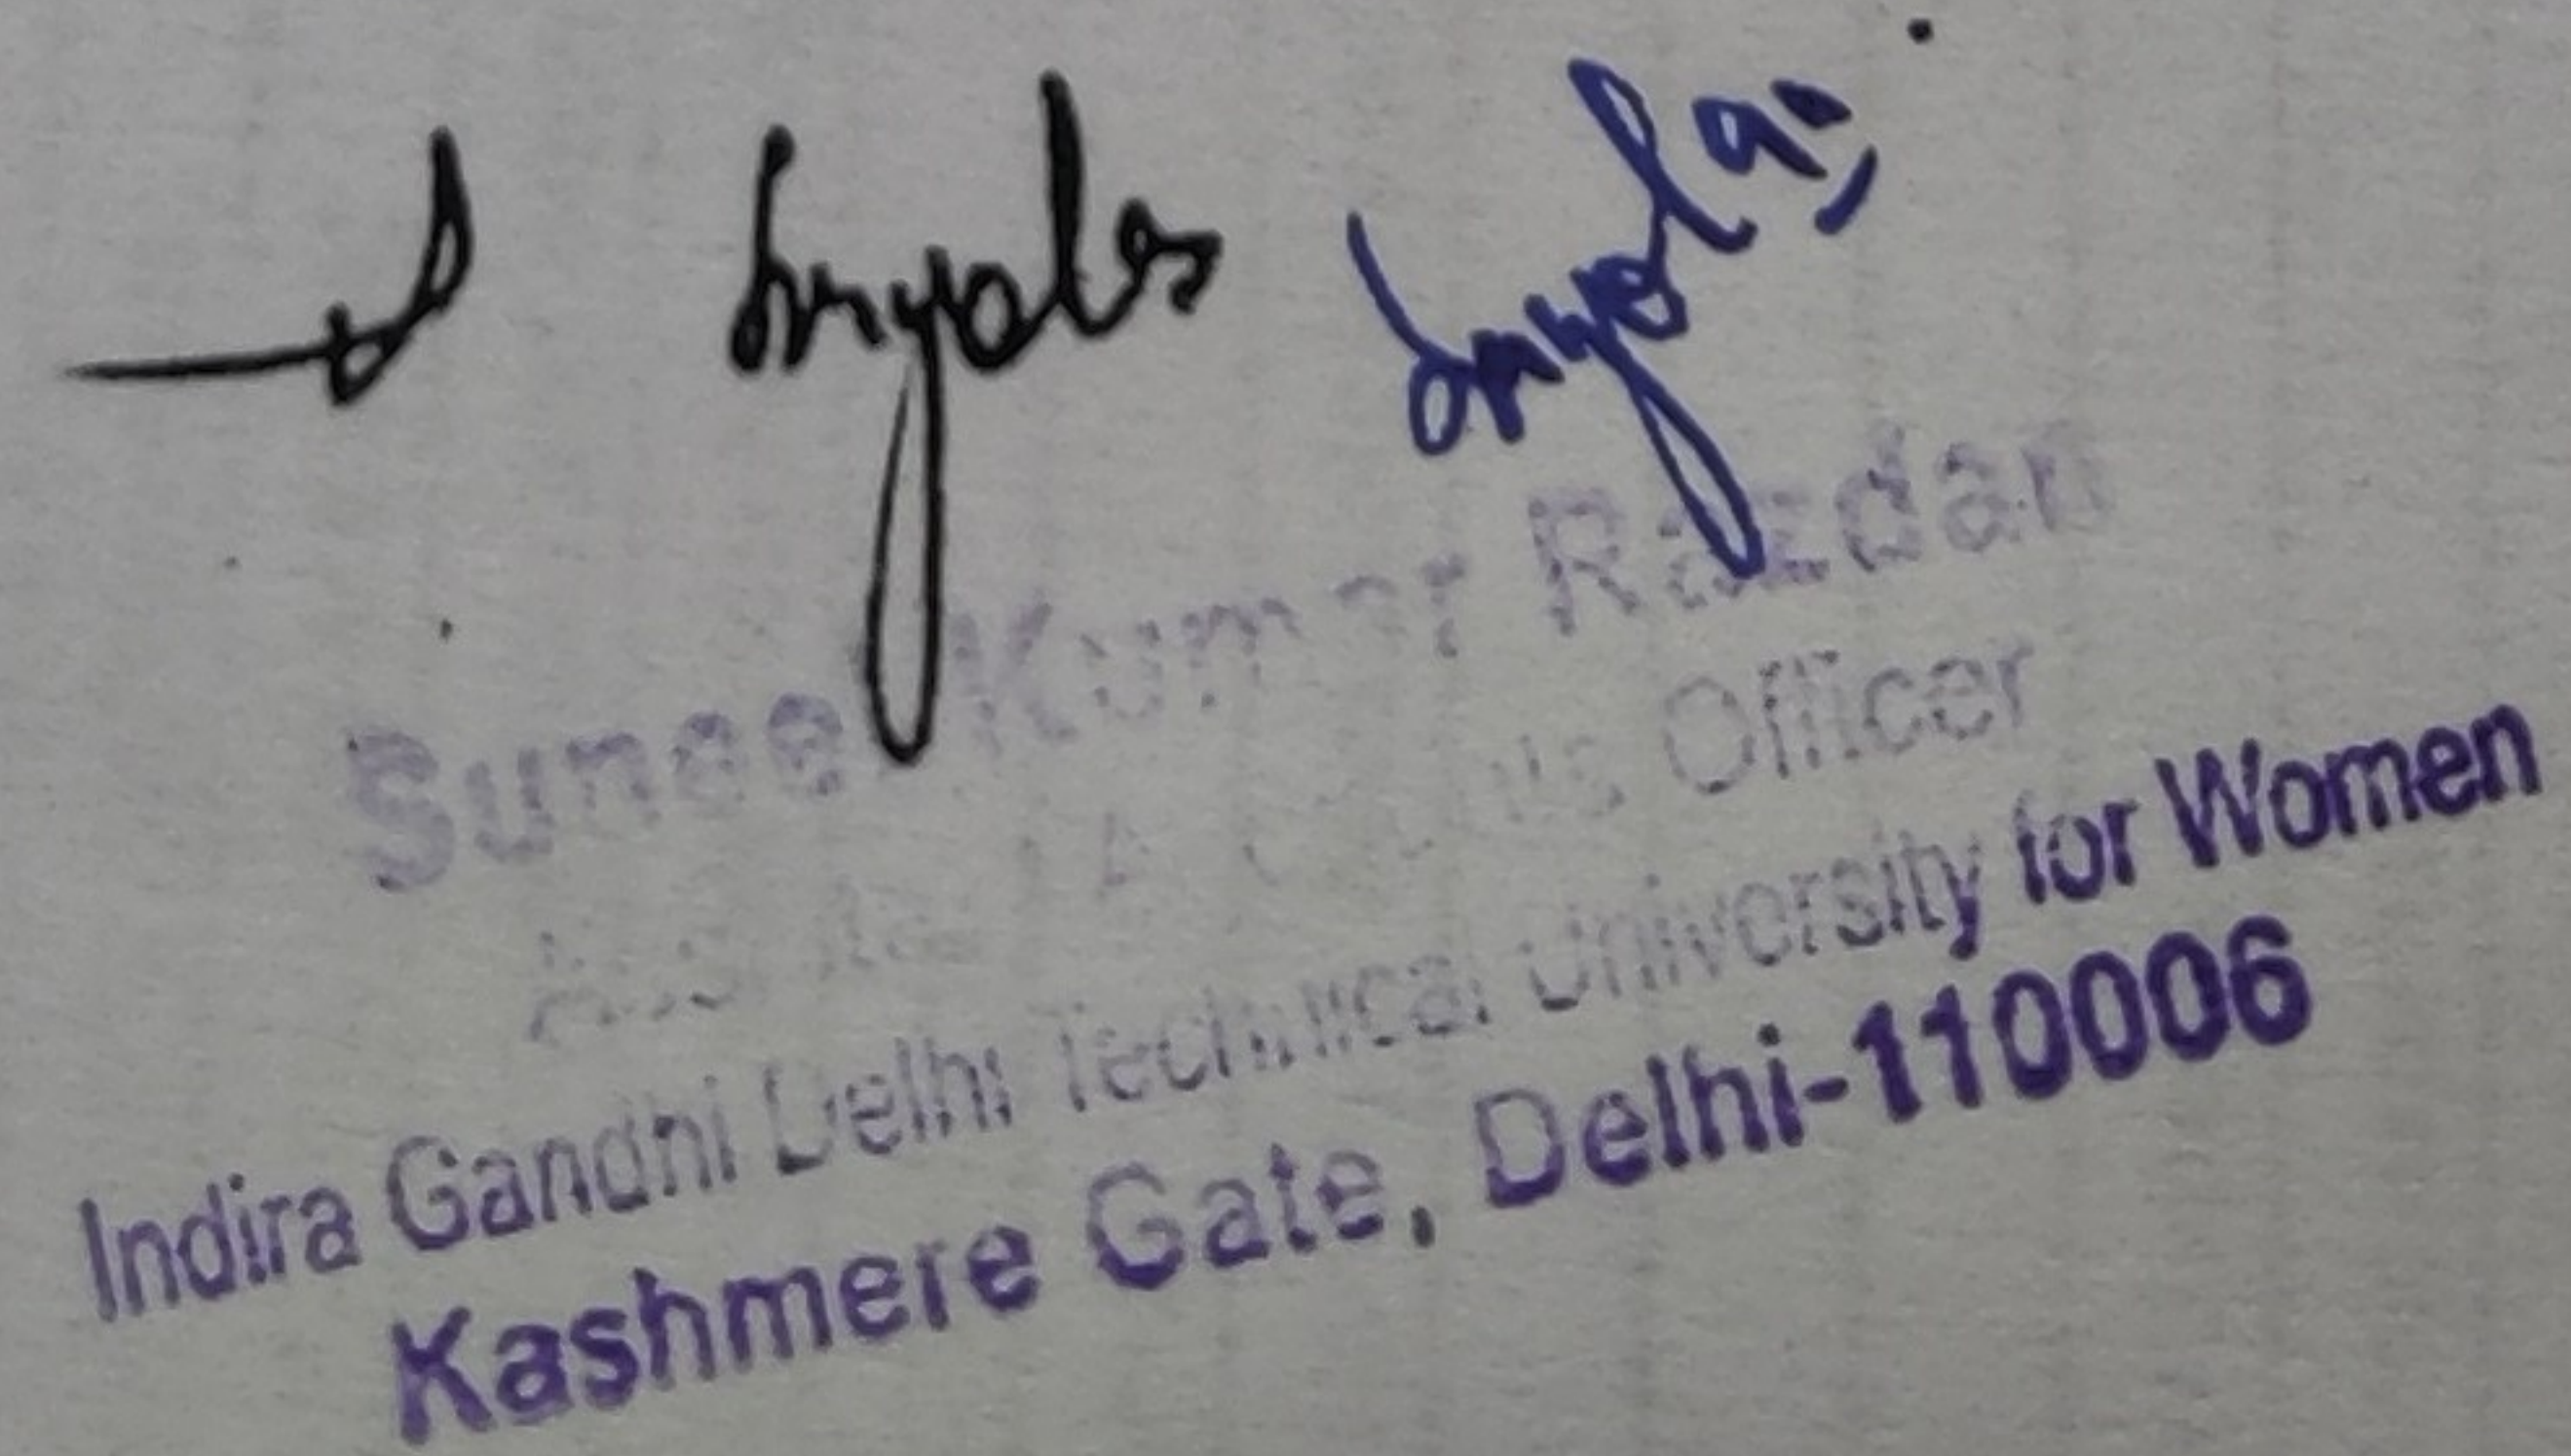 Suneel Kumar Razdan
Officer
Indira Gandhi Delhi Technical University for Women
Kashmere Gate, Delhi-110006